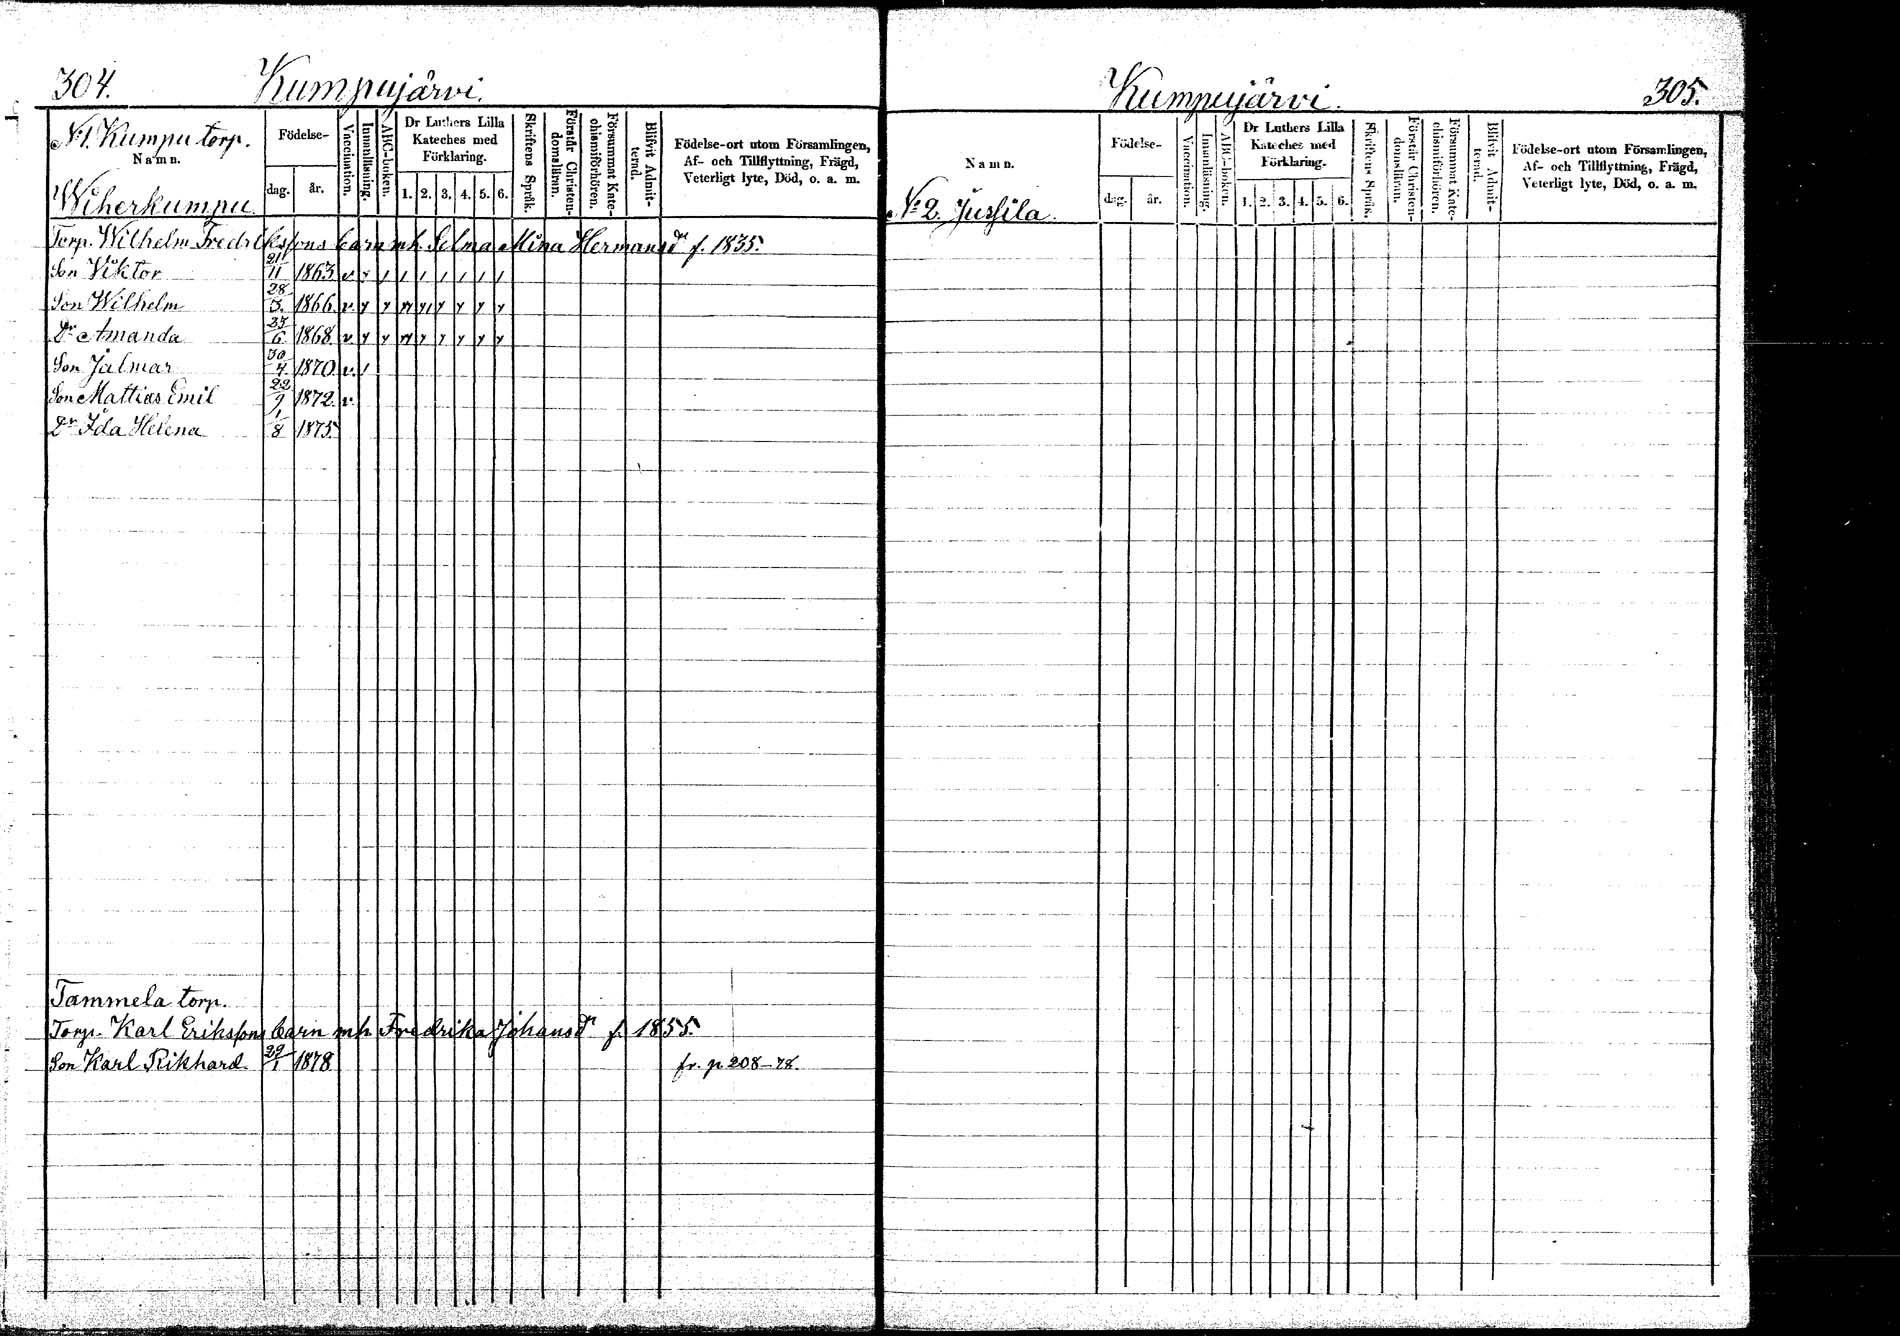 304. Kumpujärvi.
N:1. Kumpu torp.
Namn.
Wiherkumpu.
Födelse-
dag. år.
Vaccination.
Innanläsning.
ABC-boken.
Dr Luthers Lilla
Kateches med
Förklaring.
1. 2. 3. 4. 5. 6.
Skriftens Språk.
Förstår Christen-
domsläran.
Försummat Kate-
chismiförhören.
Blifvit Admit-
terad.
Födelse-ort utom Församlingen,
Af- och Tillflyttning, Frägd,
Veterligt lyte, Död, o. a. m.
Torp. Wilhelm Fredrikssons barn mh. Selma Mina Hermansdr f. 1835.
Son Viktor 21/11 1863 v
Son Wilhelm 28/3 1866 v.
Dr Amanda 25/6 1868 v
Son Jalmar 30/4 1870 v.
Son Mattias Emil 22/9 1872. v.
Dr Ida Helena 1/8 1875
Tammela torp.
Torp. Karl Erikssons barn mh Fredrika Johansdr f. 1855.
Son Karl Rikhard 29/1 1878 fr. p 208-78.
Kumpujärvi. 305.
Namn.
N:2. Jussila.
Födelse-
dag. år.
Vaccination.
Innanläsning.
ABC-boken.
Dr Luthers Lilla
Kateches med
Förklaring.
1. 2. 3. 4. 5. 6.
Skriftens Språk.
Förstår Christen-
domsläran.
Försummat Kate-
chismiförhören.
Blifvit Admit-
terad.
Födelse-ort utom Församlingen,
Af- och Tillflyttning, Frägd,
Veterligt lyte, Död, o. a. m.